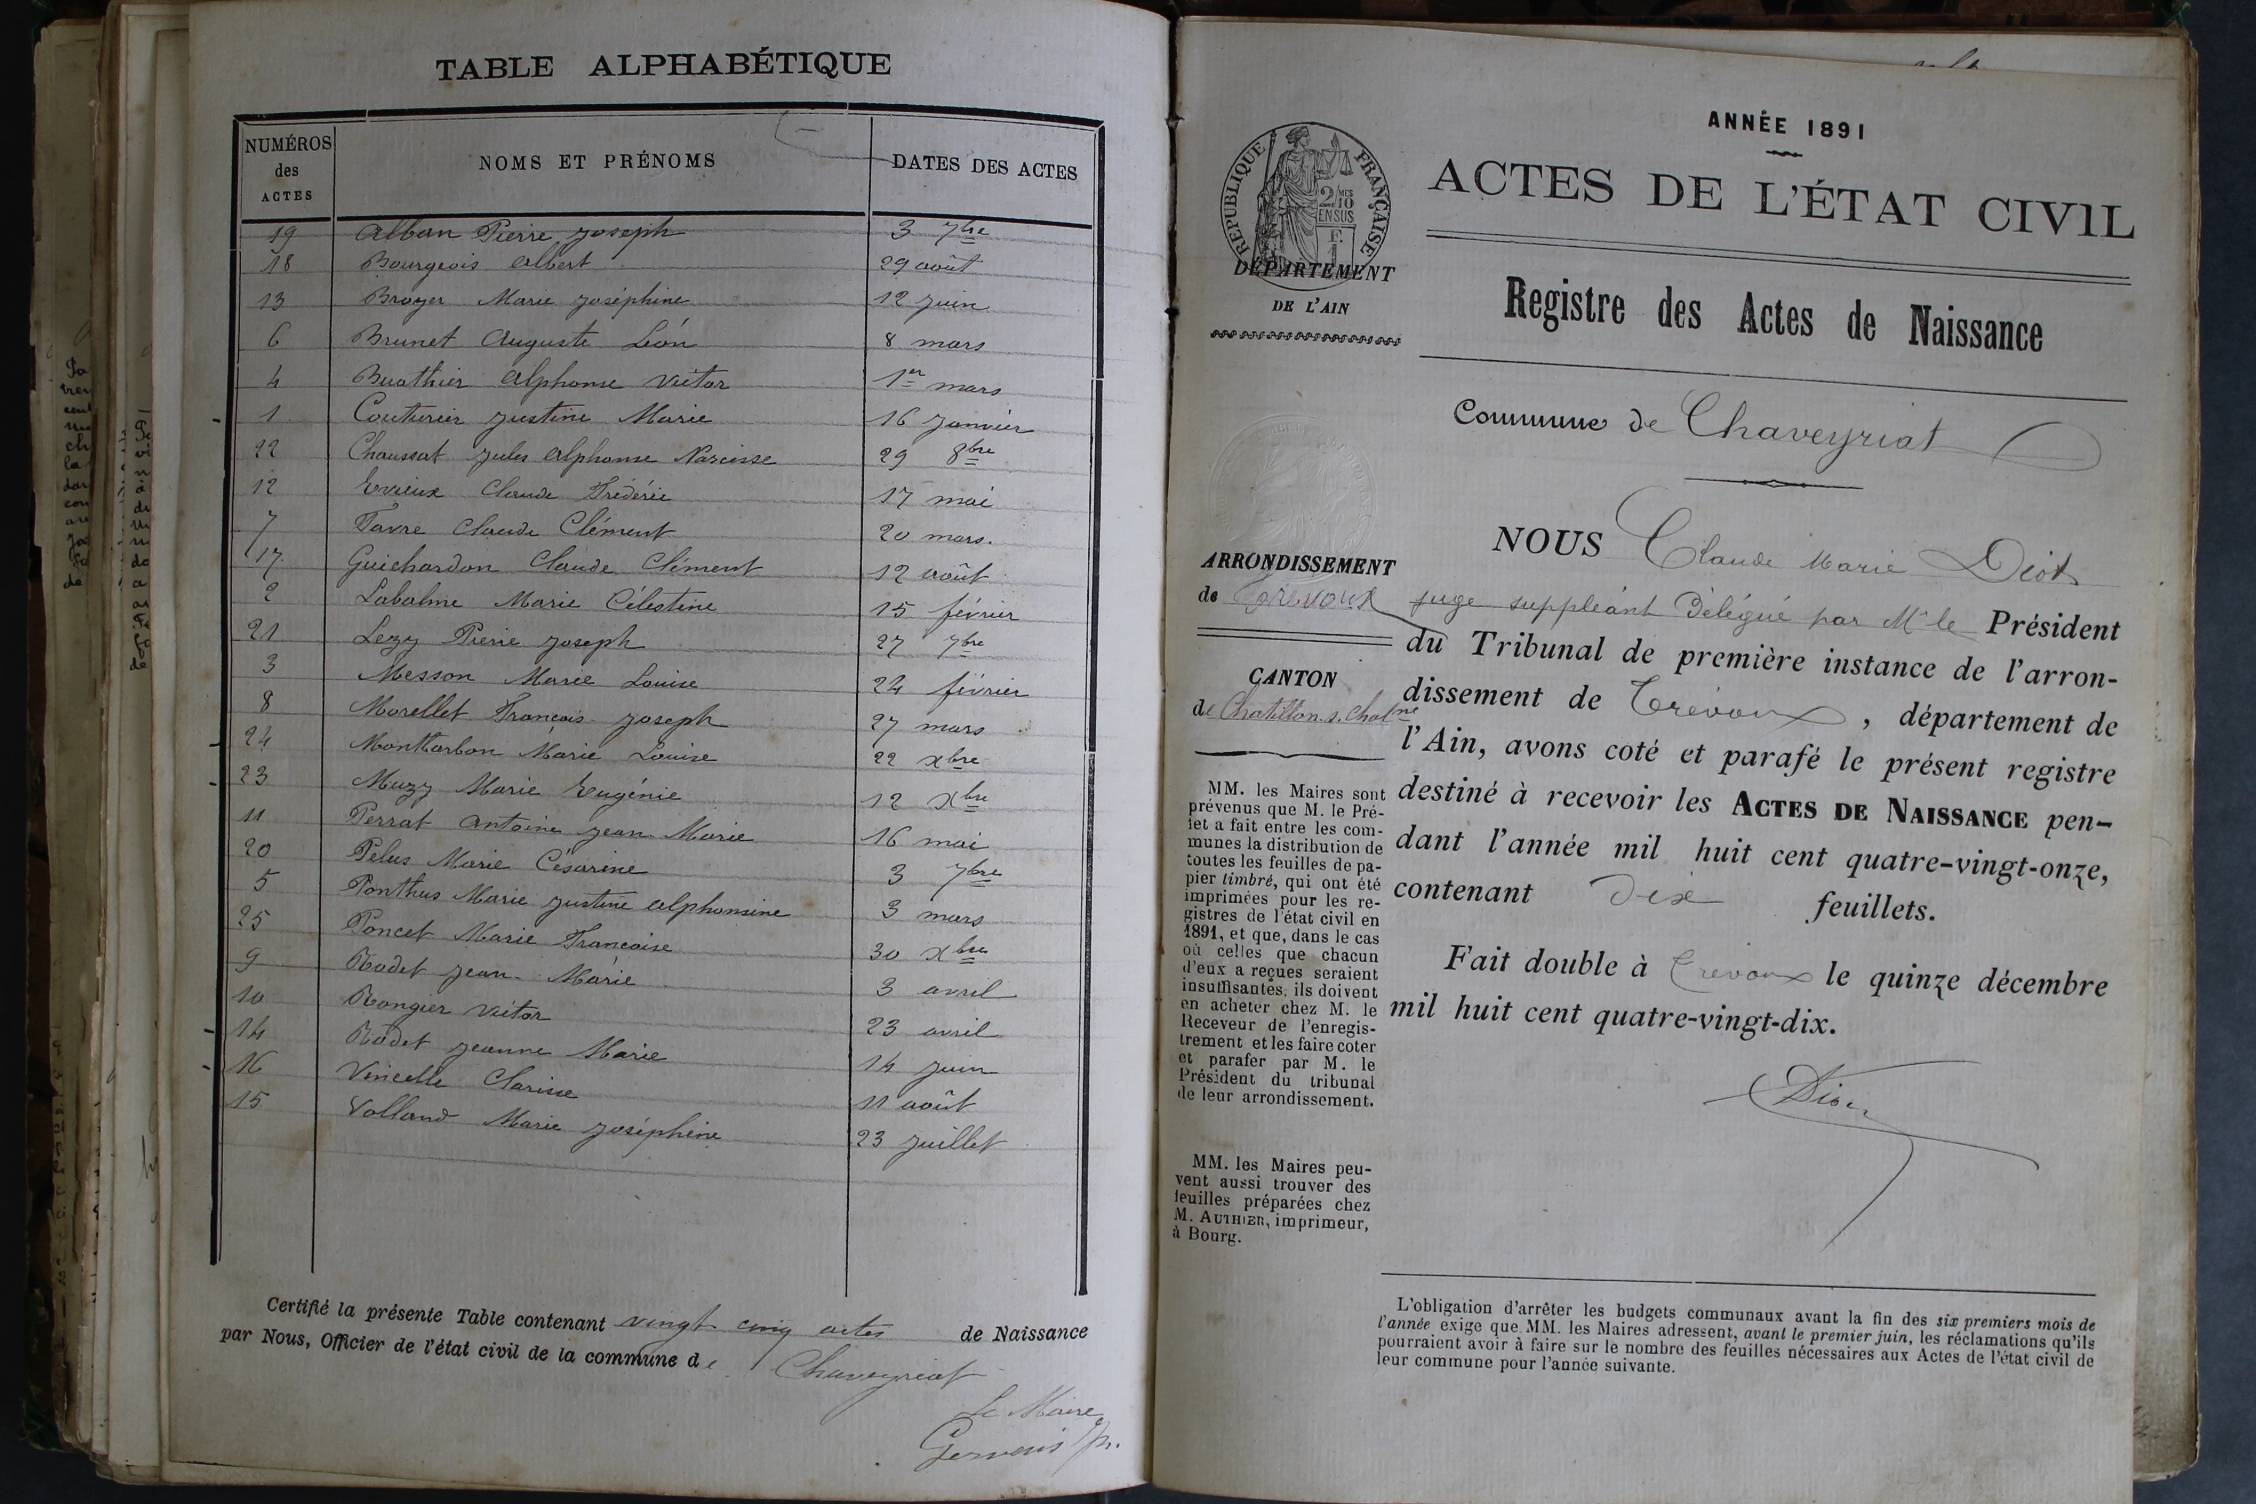 TABLE ALPHABÉTIQUE
NUMÉROS des ACTES NOMS ET PRÉNOMS DATES DES ACTES
19 Alban Pierre Joseph 3 7bre
18 Bourgeois Albert 29 août
13 Broyer Marie Joséphine 12 juin
6 Brunet Auguste Léon 8 mars
4 Buathier Alphonse Victor 1er mars
1 Couturier Justine Marie 16 Janvier
22 Chaussat Jules Alphonse Narcisse 29 8bre
12 Evieux Claude Frédéric 17 mai
7 Favre Claude Clément 20 mars.
17 Guichardon Claude Clément 12 août
2 Labalme Marie Célestine 15 février
21 Lezy Pierre Joseph 27 7bre
3 Messon Marie Louise 24 février
8 Morellet François Joseph 27 mars
24 Montarbon Marie Louise 22 xbre
23 Muzy Marie Eugénie 12 xbre
11 Perrat Antoine Jean Marie 16 mai
20 Pelus Marie Césarine 3 7bre
5 Ponthus Marie Justine Alphonsine 3 mars
25 Poncet Marie Françoise 30 xbre
9 Rodet Jean Marie 3 avril
10 Rongier Victor 23 avril
14 Rodet Jeanne Marie 14 juin
16 Vincelle Clarisse 11 août
15 Volland Marie Joséphine 23 juillet
Certifié la présente Table contenant vingt cinq actes de Naissance
par Nous, Officier de l'état civil de la commune de Chaveyriat
Le Maire
ANNÉE 1891
ACTES DE L'ÉTAT CIVIL
RÉPUBLIQUE FRANÇAISE
2/10MES
EN SUS
F.
1
DÉPARTEMENT
DE L'AIN
Registre des Actes de Naissance
Commune de Chaveyriat
ARRONDISSEMENT
de Trévoux
CANTON
de Chatillon s. Chalne
MM. les Maires sont
prévenus que M. le Pré-
fet a fait entre les com-
munes la distribution de
toutes les feuilles de pa-
pier timbré, qui ont été
imprimées pour les re-
gistres de l'état civil en
1891, et que, dans le cas
où celles que chacun
d'eux a reçues seraient
insuffisantes, ils doivent
en acheter chez M. le
Receveur de l'enregis-
trement et les faire coter
et parafer par M. le
Président du tribunal
de leur arrondissement.
MM. les Maires peu-
vent aussi trouver des
feuilles préparées chez
M. AUTHIER, imprimeur,
à Bourg.
NOUS Claude Marie Diot
juge suppléant Délégué par Mr le Président
du Tribunal de première instance de l'arron-
dissement de Trévoux, département de
l'Ain, avons coté et parafé le présent registre
destiné à recevoir les ACTES DE NAISSANCE pen-
dant l'année mil huit cent quatre-vingt-onze,
contenant Dix feuillets.
Fait double à Trévoux le quinze décembre
mil huit cent quatre-vingt-dix.
L'obligation d'arrêter les budgets communaux avant la fin des six premiers mois de
l'année exige que MM. les Maires adressent, avant le premier juin, les réclamations qu'ils
pourraient avoir à faire sur le nombre des feuilles nécessaires aux Actes de l'état civil de
leur commune pour l'année suivante.